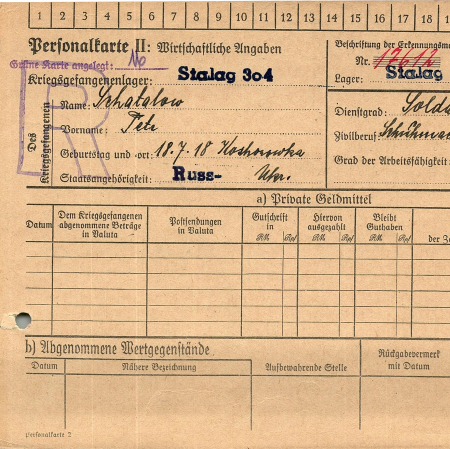 1 2 3 4 5 6 7 8 9 10 11 12 13 14 15 16 17 18
Personalkarte II: Wirtschaftliche Angaben
Beschriftung der Erkennungsm
Grüne Karte angelegt:
Nr. 12612
Kriegsgefangenenlager: Stalag 304
Lager: Stalag
Des Kriegsgefangenen
R
Name: Schatalow
Dienstgrad: Solda
Vorname: Petr
Zivilberuf: Schuhmac
Geburtstag und -ort: 18.7.18
Grad der Arbeitsfähigkeit:
Staatsangehörigkeit: Russ- Ukr.
a) Private Geldmittel
Datum
Dem Kriegsgefangenen abgenommene Beträge in Valuta
Postsendungen in Valuta
Gutschrift in
Hiervon ausgezahlt
Bleibt Guthaben
RM Rpf RM Rpf RM Rpf
der Z
b) Abgenommene Wertgegenstände
Datum
Nähere Bezeichnung
Aufbewahrende Stelle
Rückgabevermerk mit Datum
Personalkarte 2